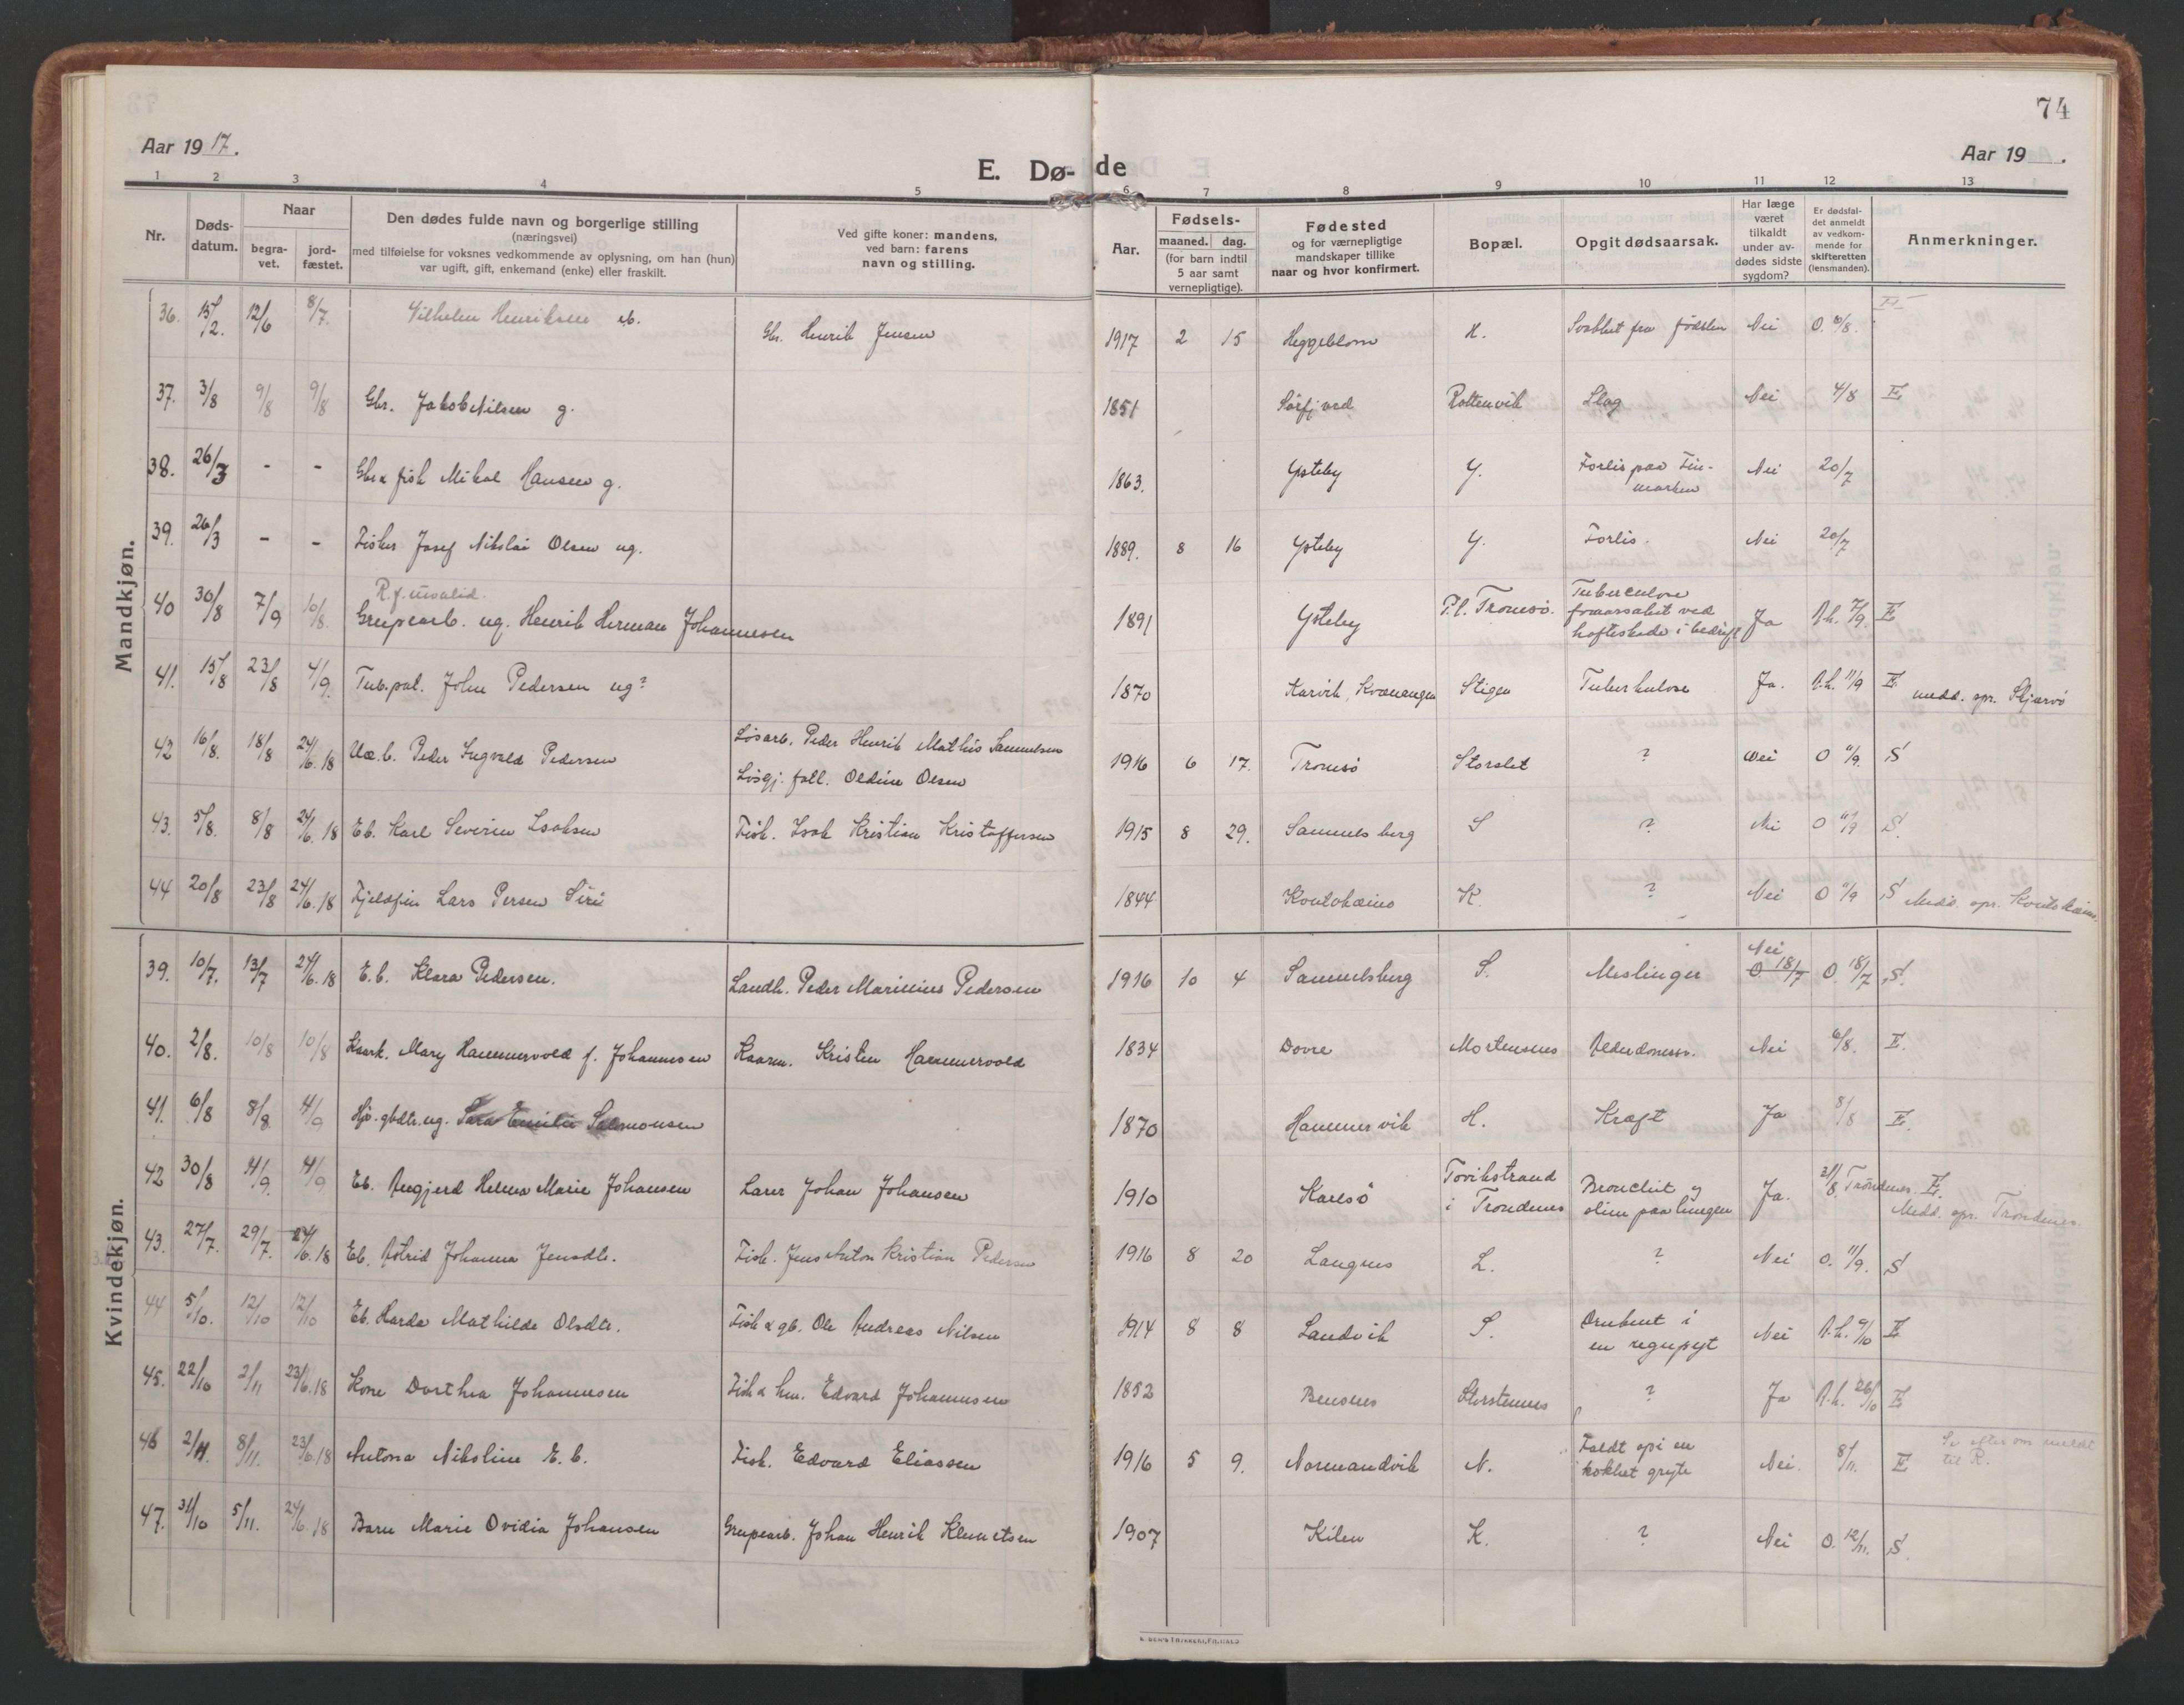 74
Aar 1917.
Aar 19 .
E. Dø-de
1 2 3 4 5 6 7 8 9 10 11 12 13
Nr.
Døds-datum.
Naar
begra-vet.
jord-fæstet.
Den dødes fulde navn og borgerlige stilling
(næringsvei)
med tilføielse for voksnes vedkommende av oplysning, om han (hun)
var ugift, gift, enkemand (enke) eller fraskilt.
Ved gifte koner: mandens,
ved barn: farens
navn og stilling.
Aar.
Fødsels-
maaned. dag.
(for barn indtil
5 aar samt
vernepligtige).
Fødested
og for værnepligtige
mandskaper tillike
naar og hvor konfirmert.
Bopæl.
Opgit dødsaarsak.
Har læge
været
tilkaldt
under av-
dødes sidste
sygdom?
Er dødsfal-
det anmeldt
av vedkom-
mende for
skifteretten
(lensmanden).
Anmerkninger.
Mandkjøn.
36. 15/2. 12/6 8/7. Vilhelm Henriksen eb. Gbr. Henrik Jensen 1917 2 15 Heggeblom H. Svakhet fra fødslen Nei O. 6/8. E
37. 3/8 9/8 9/8 Gbr. Jakob Nilsen g. 1851 Sørfj ved Rottenvik Slag Nei 4/8 E
38. 26/3 - - Gbr & fisk Mikal Hansen g. 1863. Ysteby Y. Forlis paa Fin-
marken Nei 20/7
39. 26/3 - - Fisker Josef Nikolai Olsen ug. 1889. 8 16 Ysteby Y. Forlis. Nei 20/7
R.f. invalid.
40 30/8 7/9 10/8. Grupearb. ug. Henrik Herman Johannesen 1891 Ysteby P.t. Tromsø. Tuberculose
foraarsaket ved
hofteskade i bedrift Ja A.h. 7/9. E
41. 15/8 23/8 4/9. Tub.pat. John Pedersen ug? 1870 Karvik, Kvænangen Stigen Tuberkulose Ja. A.h. 11/9 E medd. spr. Skjærvø
42 16/8. 18/8 24/6.18 Uæ.b. Peder Ingvald Pedersen Løsarb. Peder Henrik Mathis Samuelsen
Løsgj. fatt. Oldine Olsen 1916 6 17. Tromsø Storslet ? Nei O 11/9. S
43. 5/8. 8/8 24/6.18 Eb. Karl Severin Isaksen Fisk. Isak Kristian Kristoffersen 1915 8 29. Samuelsberg S ? Nei O 11/9 S.
44 20/8 23/8 24/6.18 Fjeldfin Lars Persen Siri 1844 Koutokæino K. ? Nei O 11/9 S Medd. spr. Koutokæino
Kvindekjøn.
39. 10/7. 13/7 24/6.18 E.b. Klara Pedersen. Landh. Peder Marinius Pedersen 1916 10 4 Samuelsberg S. Meslinger Nei
O. 18/7 O. 18/7 S.
40. 2/8. 10/8 10/8 Kaark. Mary Hammervold f. Johannesen Kaarm. Kristen Hammervold 1834 Dovre Mortensnes Alderdomssv. Nei 6/8. E.
41. 6/8 8/8 4/9 Hjv. gbdtr. ug. Sara Emilie Salomonsen 1870 Hammervik H. Kræft Ja 8/8 E.
42 30/8 4/9. 4/9 Eb. Angjerd Helma Marie Johansen Lærer Johan Johansen 1910 Karlsø Tovikstrand
i Trondenes Bronchit og
slim paa lungen Ja. 31/8. Trondenes. E.
Medd. spr. Trondenes.
43. 27/7. 29/7. 24/6.18 Eb. Astrid Johanna Jensdtr. Fisk. Jens Anton Kristian Pedersen 1916 8 20 Langnes L. ? Nei O. 11/9. S
44 5/10. 12/10 12/10 Eb. Harda Mathilde Olsdtr. Fisk & gb. Ole Andreas Nilsen 1914 8 8 Sandvik S. Druknet i
en regnpyt Nei A.h. 9/10 E
45. 22/10 2/11 23/6.18 Kone Dorthea Johannesen Fisk & hm. Edvard Johannesen 1852 Bensnes Storstennes ? Ja A.h. 26/10 E
46 2/11. 8/11. 23/6.18 Antona Nikoline E.b. Fisk. Edvard Eliassen 1916 5 9. Normandvik N. Faldt opi en
kokhet gryte Nei. 8/11. E Se efter om meldt
til R.
47. 31/10 5/11. 24/6.18 Barn Marie Ovidia Johansen Grupearb. Johan Henrik Klemetsen 1907 Kilen K. ? Nei O. 12/11. S.